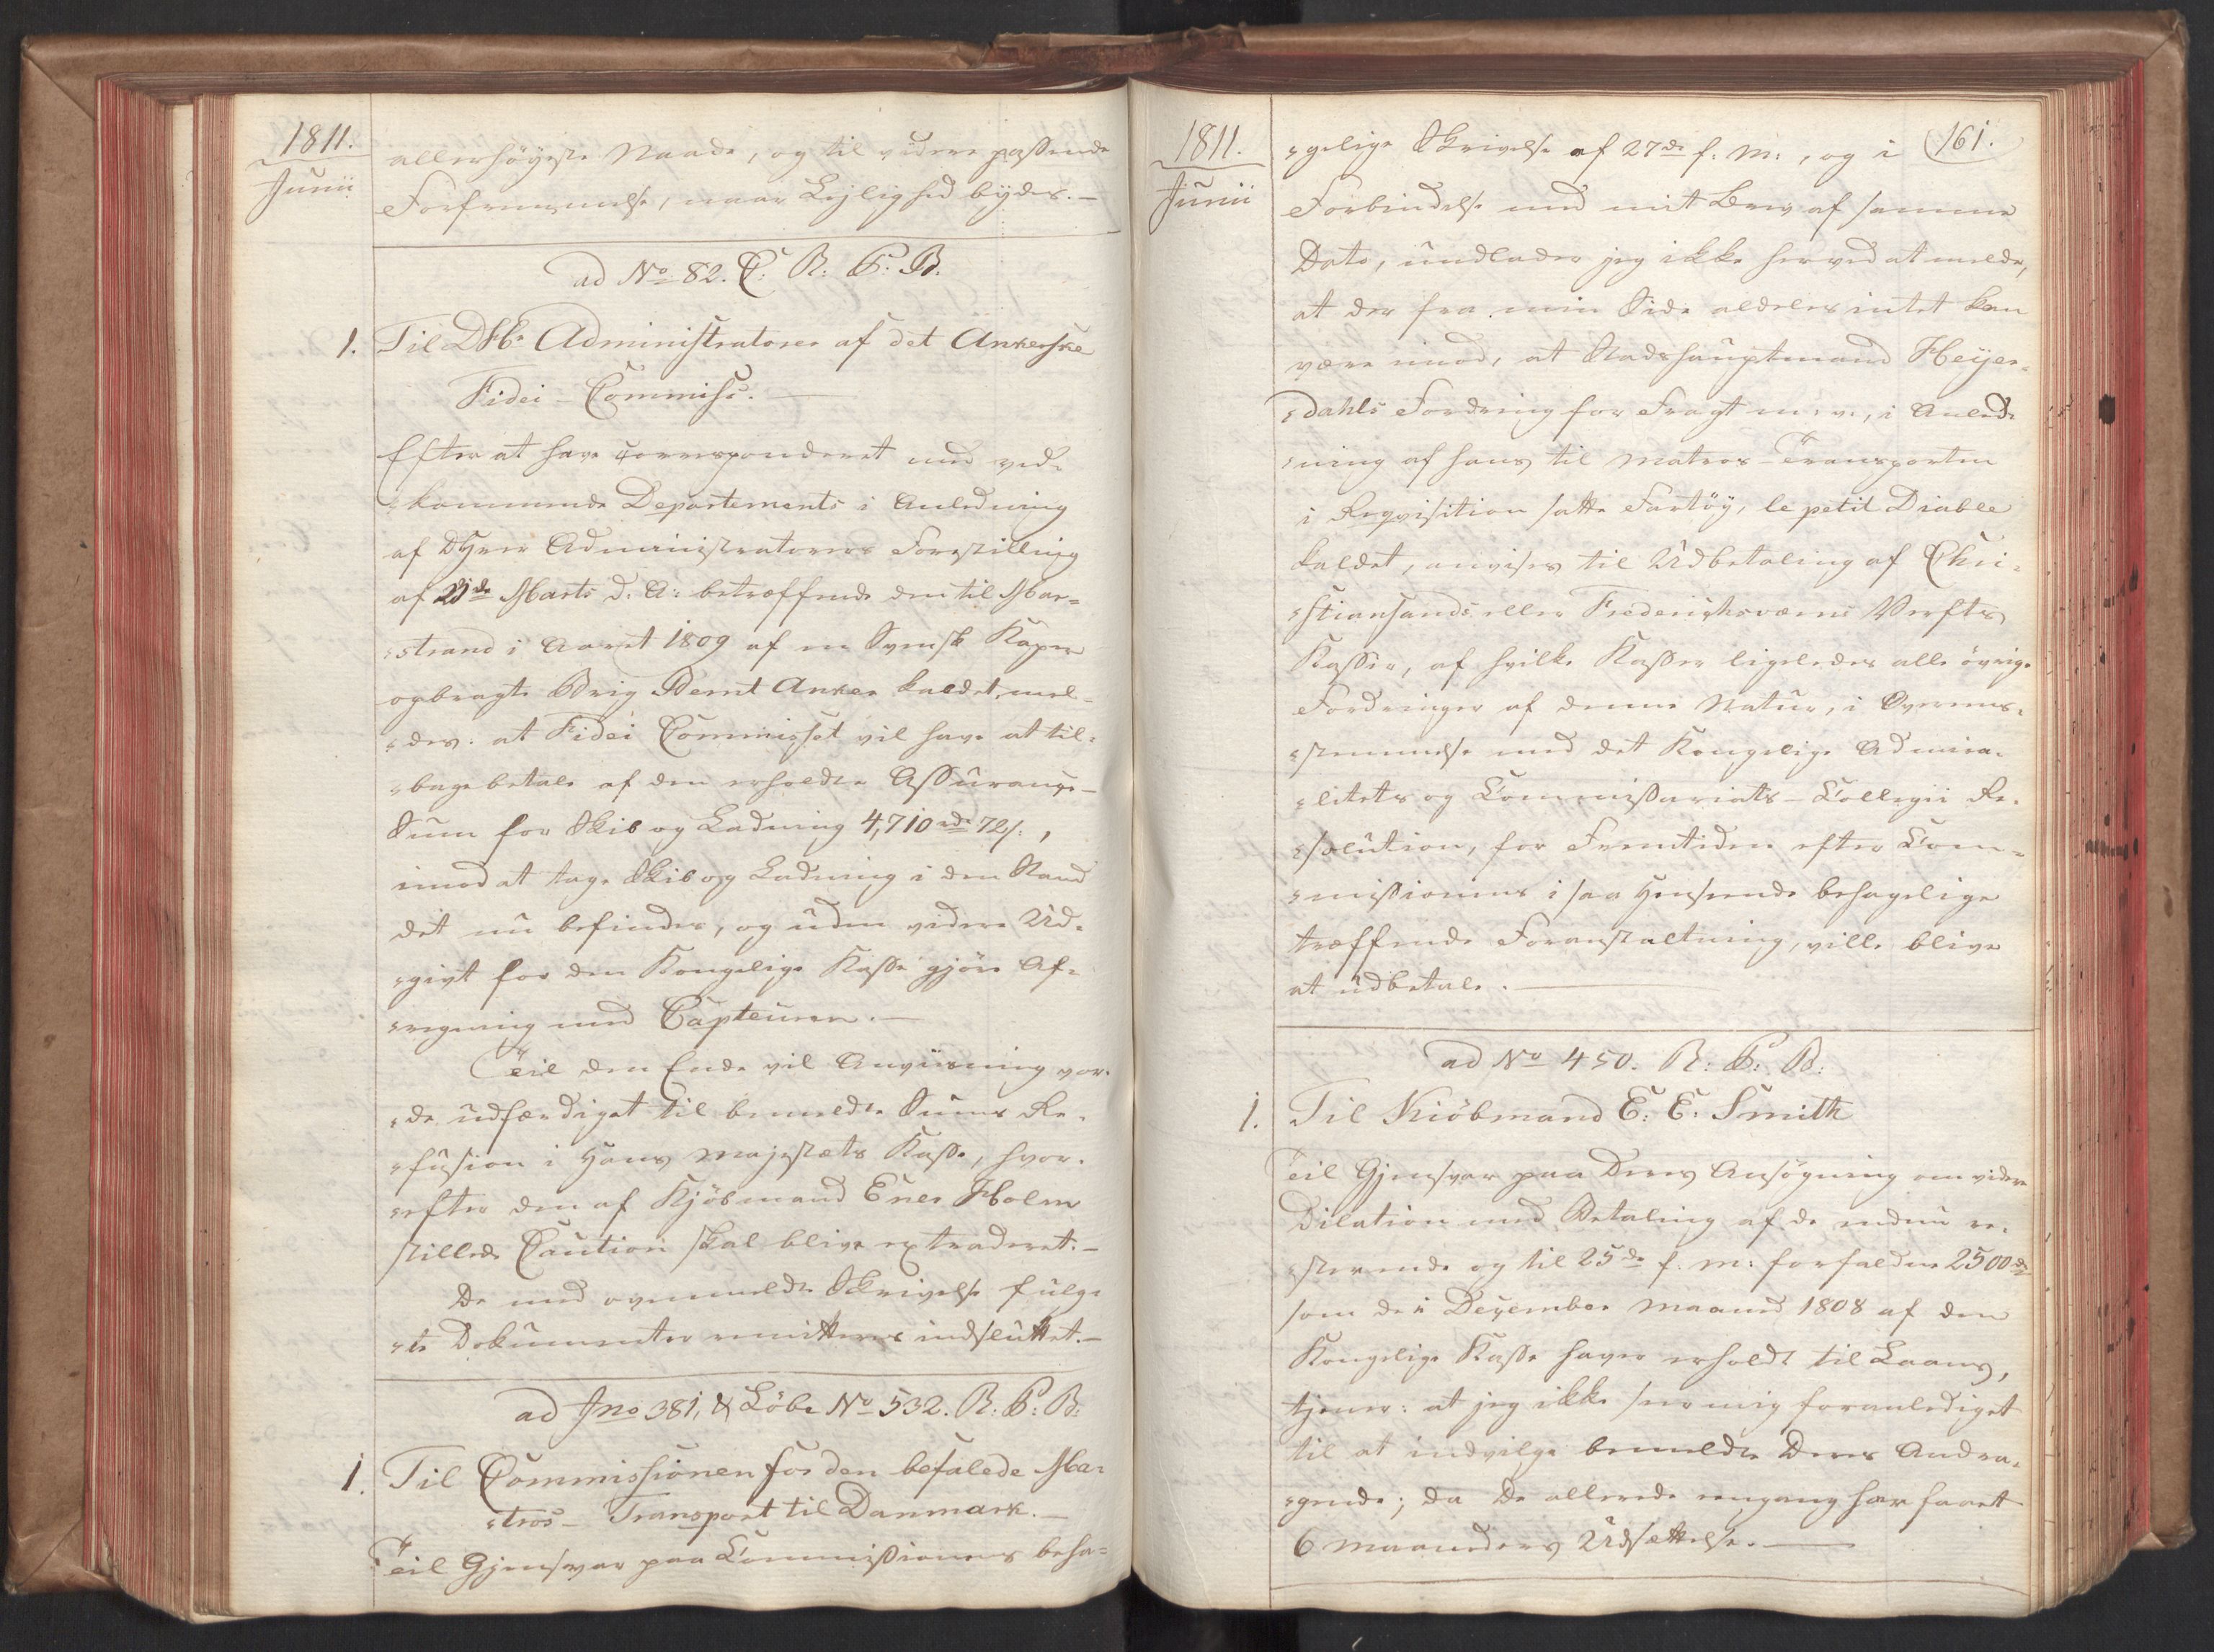 1811.
Junii
allerhöyeste Naade, og til videre passende
Forfremmelse, naar Lejlighed bydes.—
ad No 82. C: R: P: B.
1. Til DHr Administratorer af det Ankerske
Fidei-Commiss.—
Efter at have corresponderet med ved-
kommende Departements i Anledning
af DHrrer Administratorers Forestilling
af Marts d. A: betræffende den til Mar=
=strand i Aaret 1809 af en Svensk Kaper
opbragte Brig Bernt Anker kaldet, mel-
=des: at Fidei Commisset vil have at til-
=bagebetale af den erholdte Assurance-
Sum for Skib og Ladning 4,710 rdr 72 s:,
imod at tage Skib og Ladning i den Stand
det nu befindes, og uden videre Ud-
=givt for den Kongelige Kasse gjöre Af-
=regning med Capteuren.—
Til den Ende vil Anviisning vor-
=de udfærdiget til bemeldte Sums Re-
=fusion i Hans Majestæts Kasse, hvor-
=efter den af Kjöbmand Ener Holm
stillede Caution skal blive extraderet.—
De med ovenmeldte Skrivelse fulg-
=te Dokumenter remitteres indsluttet.—
ad Jno 381, & Löbe No 532. R: P: B:
1. Til Commissionen for den befalede Ma-
=tros-Transport til Danmark.—
Til Gjensvar paa Commissionens beha=
1811.
Junii
161.
=gelige Skrivelse af 27de f: M:, og i
Forbindelse med mit Brev af samme
Dato, undlader jeg ikke herved at melde,
at der fra min Side aldeles intet kan
være imod, at Stadshauptmand Heyer-
=dahls Fordring for Fragt m: v:, i Anled-
=ning af hans til Matros-Transporten
i Reqvisition satte Fartöy, le petit Diable
kaldet, anvises til Udbetaling af Chri-
=stiansands eller Frederichsværns Verfts
Kasser, af hvilke Kasser ligeledes alle övrige
Fordringer af denne Natur, i Overens-
=stemmelse med det Kongelige Admira-
=litets og Commissariats-Collegii Re-
=solution, for Fremtiden efter Com-
=missionens i saa Henseende behagelige
træffende Foranstaltning, ville blive
at udbetale.—
ad No 450. R: P: B:
1. Til Kiöbmand E: E: Smith
Til Gjensvar paa Deres Ansögning om videre
Dilation med Betaling af de endnu re-
=sterende og til 25de f. M: forfaldne 2500 rd
som De i December Maaned 1808 af den
Kongelige Kasse haver erholdt til Laans,
tjener: at jeg ikke seer mig foranlediget
til at indvilge bemeldte Deres Andra-
=gende; da De allerede engang har faaet
6 Maaneders Udsættelse.—